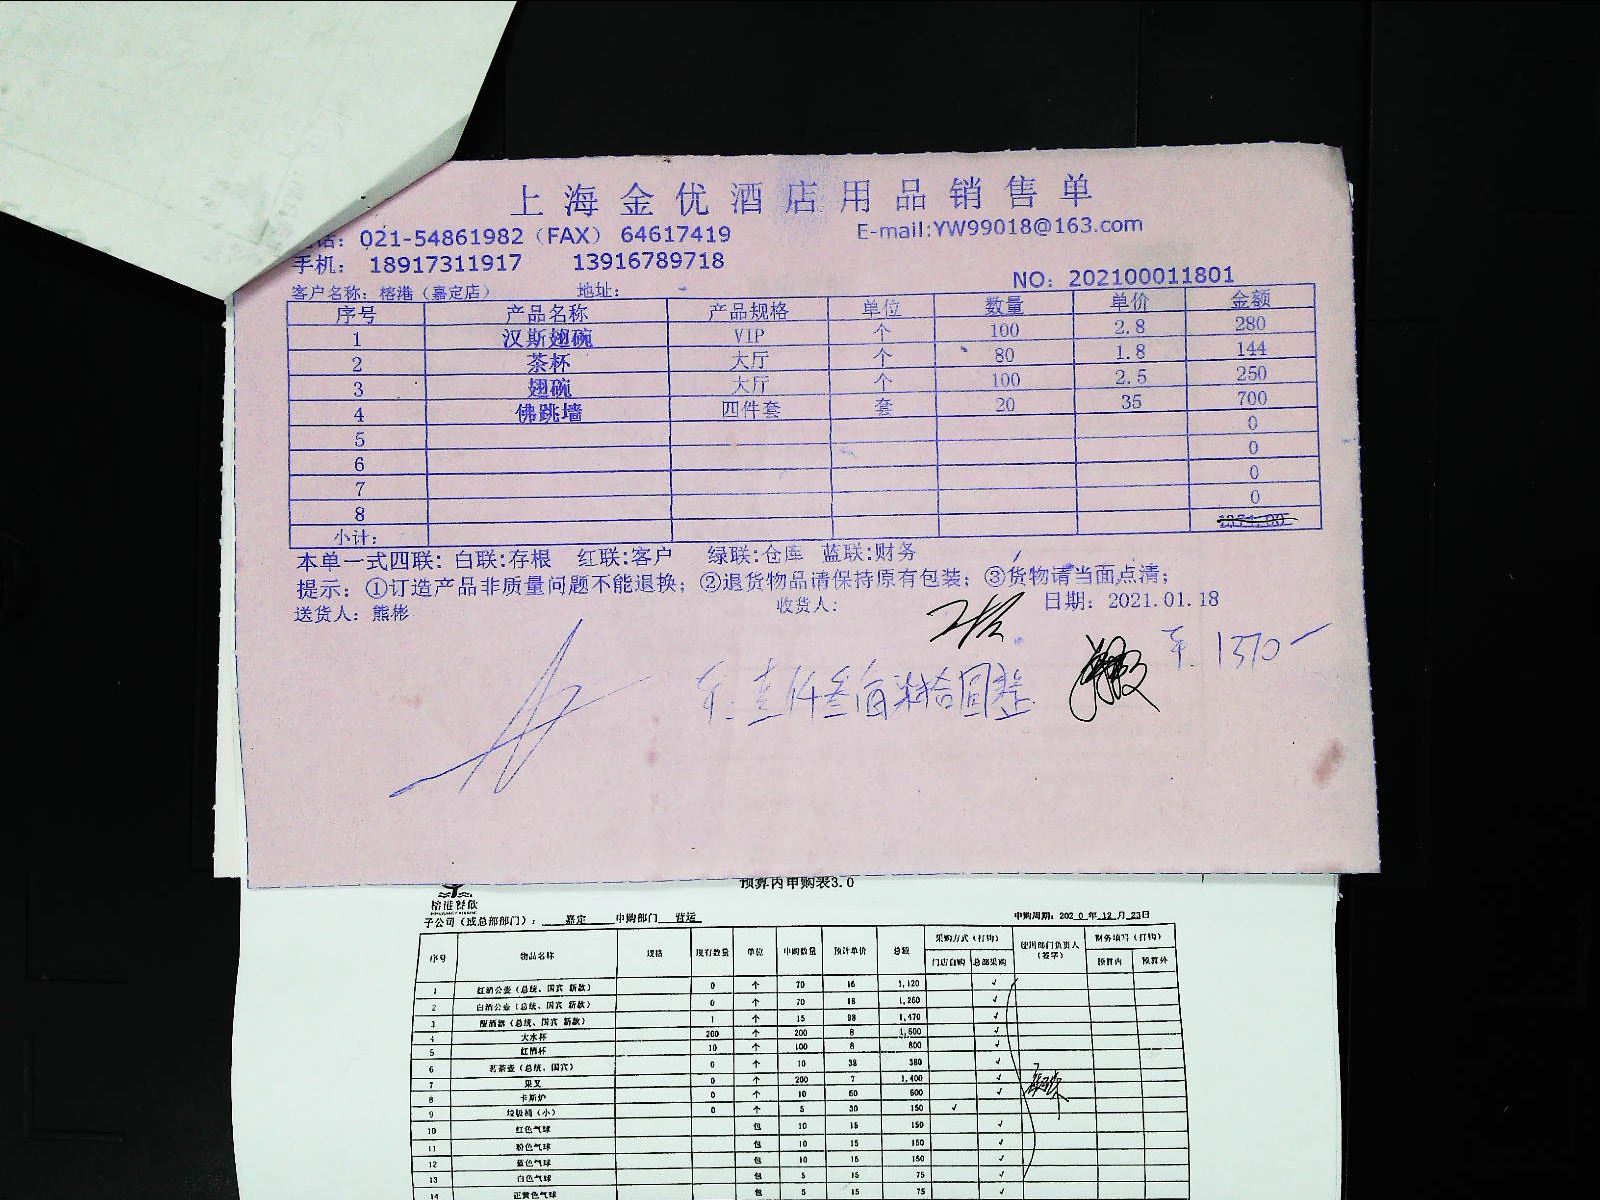 上海金优酒店用品销售单
话：021-54861982（FAX） 64617419 E-mail:YW99018@163.com
手机： 18917311917 13916789718
NO：202100011801
客户名称：榕港（嘉定店） 地址：
序号 产品名称 产品规格 单位 数量 单价 金额
1 汉斯翅碗 VIP 个 100 2.8 280
2 茶杯 大厅 个 80 1.8 144
3 翅碗 大厅 个 100 2.5 250
4 佛跳墙 四件套 套 20 35 700
5 0
6 0
7 0
8 0
小计： 1374.00
本单一式四联：白联:存根 红联:客户 绿联:仓库 蓝联:财务
提示：①订造产品非质量问题不能退换；②退货物品请保持原有包装；③货物请当面点清；
送货人：熊彬 收货人： 日期：2021.01.18
1370
壹仟叁百柒拾圆整
预算内申购表3.0
榕港餐饮
子公司（或总部部门）： 嘉定 申购部门 营运 申购周期：2020年12月23日
序号 物品名称 规格 现有数量 单位 申购数量 预计单价 总额 采购方式（打钩） 使用部门负责人（签字） 财务填写（打钩）
门店自购 总部采购 预算内 预算外
1 红酒公壶（总统、国宾 新款） 0 个 70 16 1,120 √
2 白酒公壶（总统、国宾 新款） 0 个 70 18 1,260 √
3 醒酒器（总统、国宾 新款） 1 个 15 98 1,470 √
4 大水杯 200 个 200 8 1,600 √
5 红酒杯 10 个 100 8 800 √
6 茗茶壶（总统、国宾） 0 个 10 38 380 √
7 果叉 0 个 200 7 1,400 √
8 卡斯炉 0 个 10 60 600 √
9 垃圾桶（小） 0 个 5 30 150 √
10 红色气球 包 10 15 150 √
11 粉色气球 包 10 15 150 √
12 蓝色气球 包 10 15 150 √
13 白色气球 包 5 15 75 √
14 正黄色气球 包 5 15 75 √